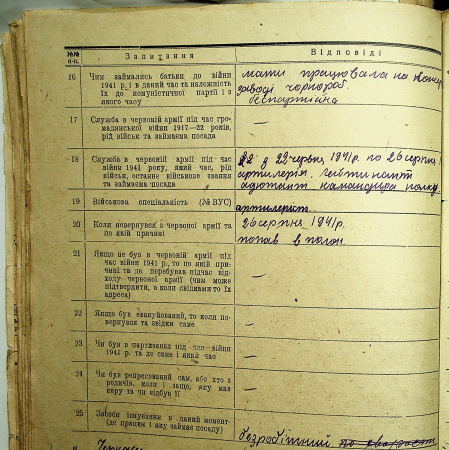 №№ п-п.
Запитання
Відповіді
16
Чим займались батьки до війни
1941 р. і в даний час та належність
їх до комуністичної партії і з
якого часу
мати працювала на
заводі чорнороб.
безпартійна
17
Служба в червоній армії під час гро-
мадянської війни 1917—22 років,
рід військ та займаєма посада
—
18
Служба в червоній армії під час
війни 1941 року, який час, рід
військ, останнє військове звання
та займаєма посада
з 22 червня 1941 р. по 26 серпня
артилерія. Лейтинант
адютант командіра полку
19
Військова спеціальність (№ ВУС)
артилерист.
20
Коли повернувся з червоної армії та
по якій причині
26 серпня 1941 р.
попав в полон.
21
Якщо не був в червоній армії під
час війни 1941 р., то по якій при-
чині та де перебував підчас від-
ходу червоної армії (чим може
підтвердити, а коли свідками то їх
адреса)
—
22
Якщо був евакуйований, то коли по-
вернувся та звідки саме
—
23
Чи був в партизанах під час війни
1941 р. та де саме і який час
—
24
Чи був репресований сам, або хто з
родичів, коли і защо, яку мав
кару та чи відбув її
—
25
Засоби існування в даний момент
(де працює і яку займає посаду)
безробітний